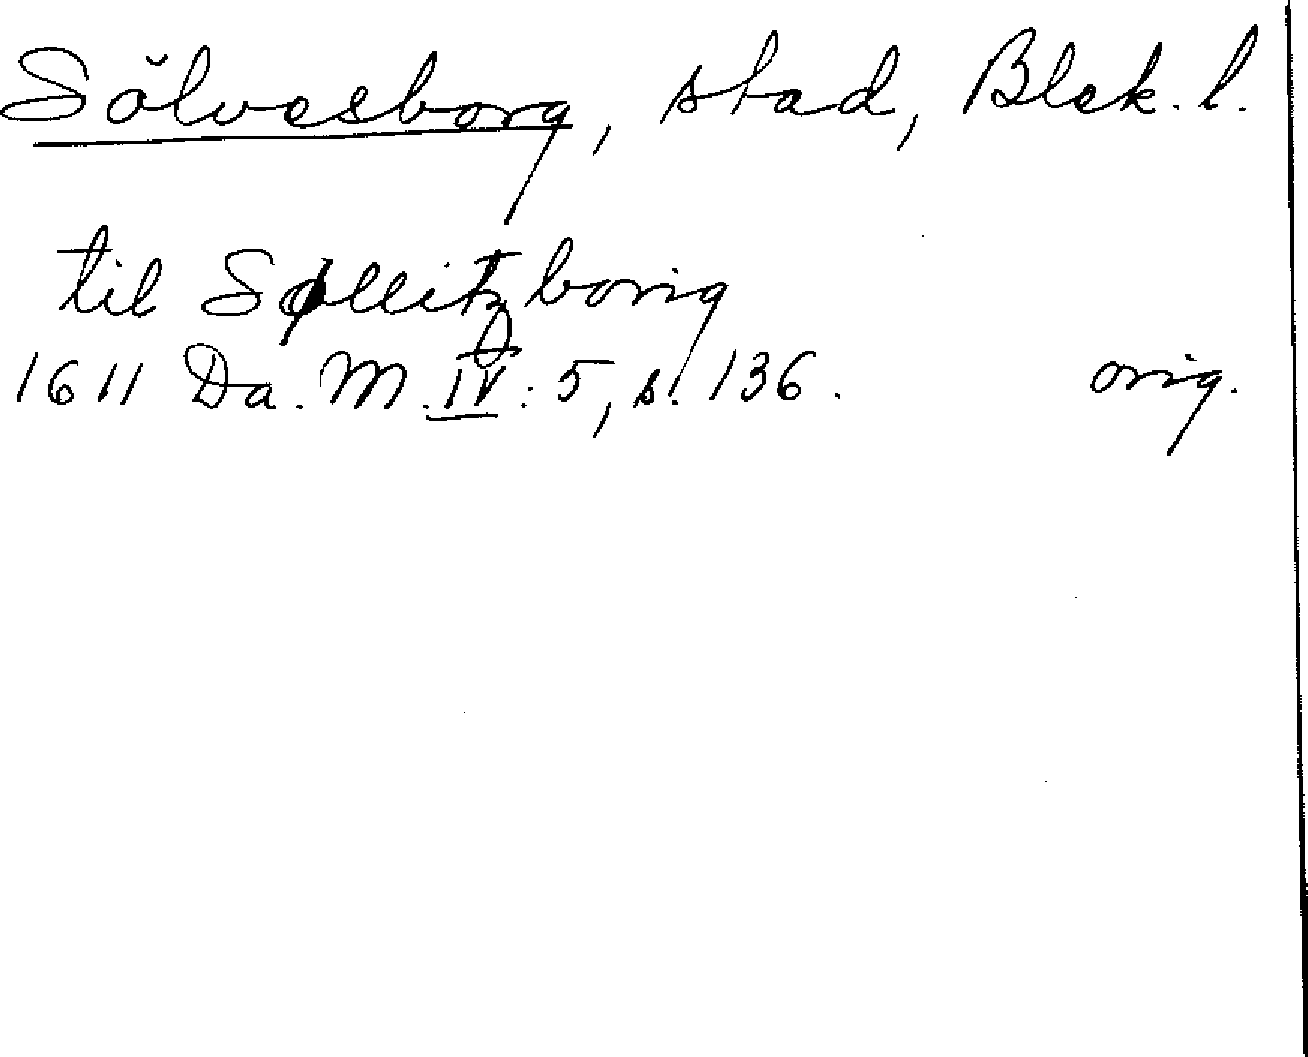 Sölvesborg, stad, Blek. l.
til Søllitzborig
1611 Da. M. IV: 5, s. 136. orig.